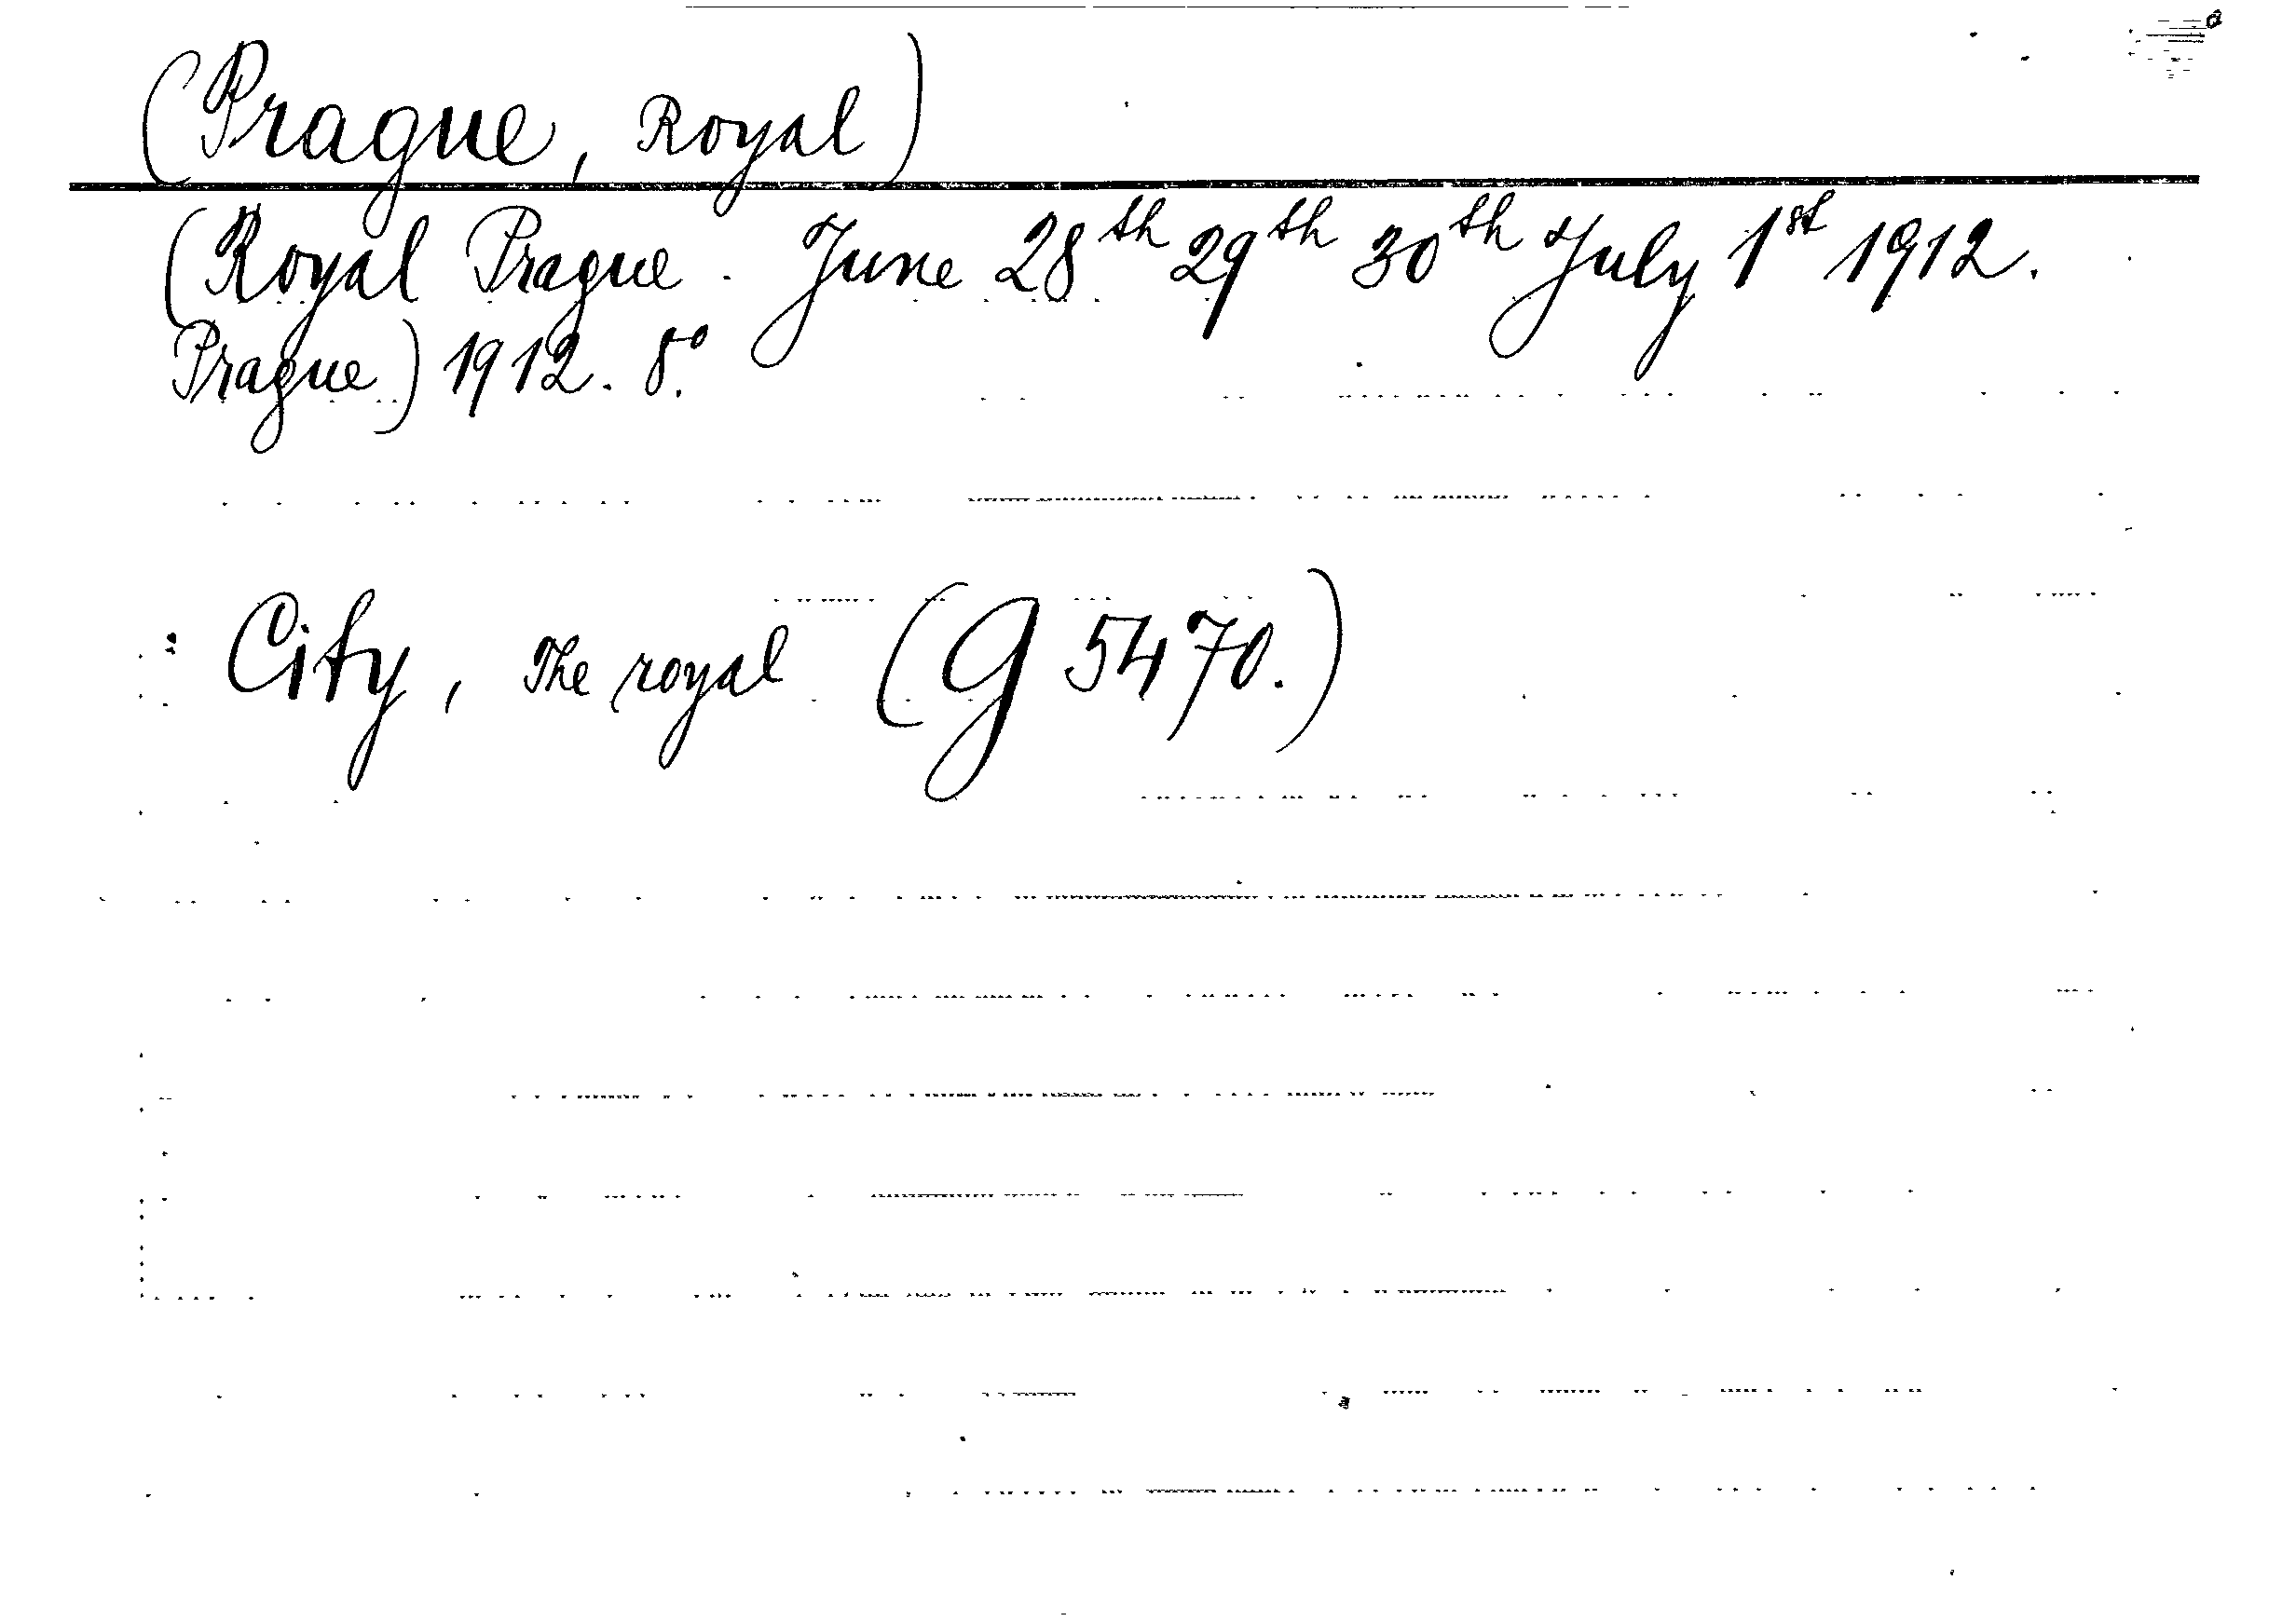 (Prague, Royal)
(Royal Prague. June 28th 29th 30th July 1st 1912.
Prague) 1912. 8º.
: City, The royal (G 5470.)